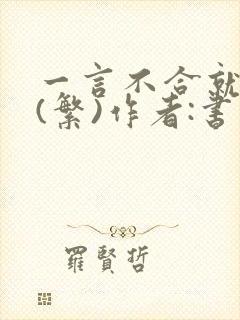 一言不合就
(繁)作者:書
羅賢哲